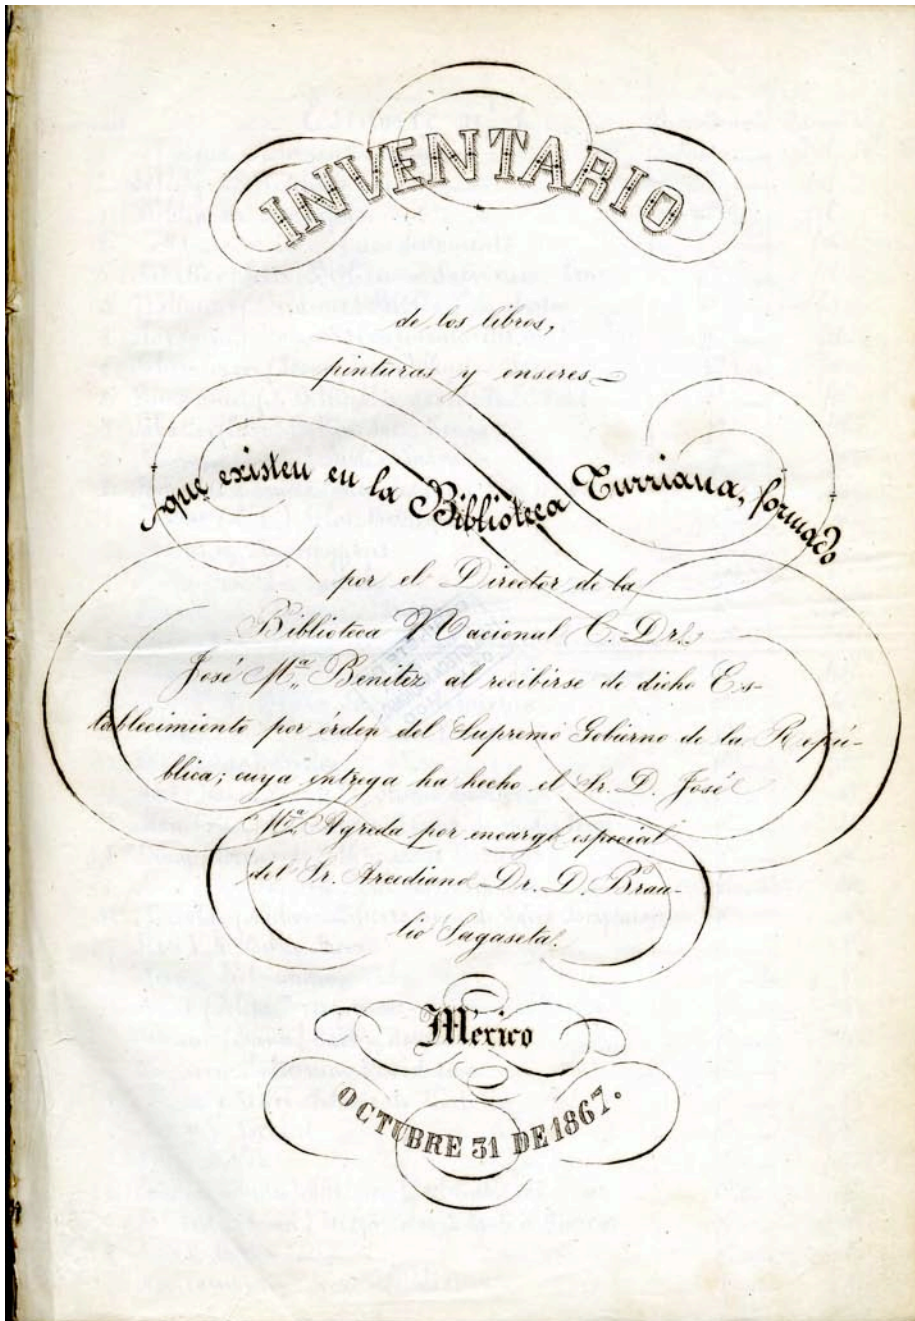 INVENTARIO
de los libros,
pinturas y enseres
que existen en la Biblioteca Turriana, formado
por el Director de la
Biblioteca Nacional C. Dr.
José Mª Benitez al recibirse de dicho Es-
tablecimiento por órden del Supremo Gobierno de la Repú-
blica; cuya entrega ha hecho el Sr. D. José
Mª Agreda por encargo especial
del Sr. Arcediano Dr. D. Brau-
lio Sagaseta.
México
OCTUBRE 31 DE 1867.